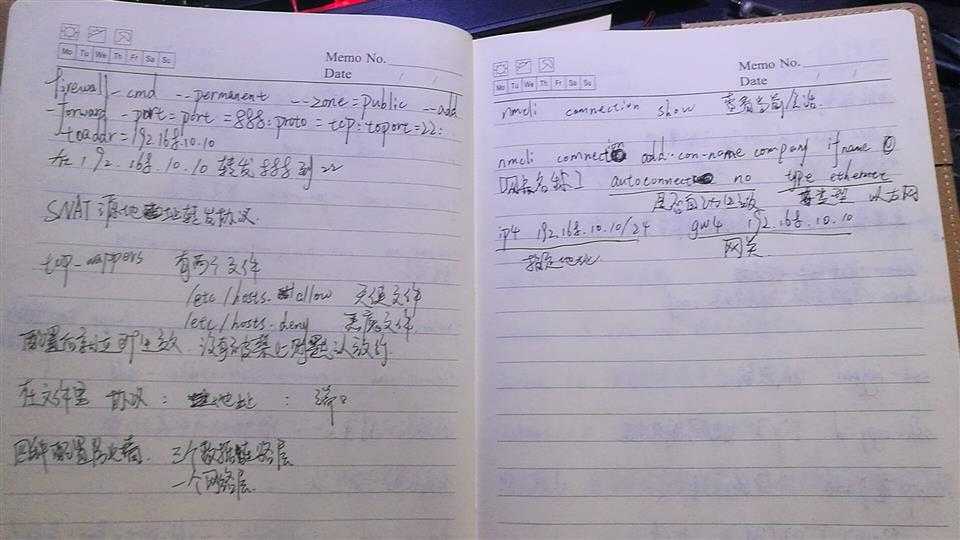 Mo Tu We Th Fr Sa Su
Memo No.
Date / /
firewall-cmd --permanent --zone=public --add
-forward-port=port=888:proto=tcp:toport=22:
toaddr=192.168.10.10
在192.168.10.10 转发888到22
SNAT 源地址转发协议
有两个文件
/etc/hosts.allow 天使文件
/etc/hosts.deny 恶魔文件
配置后立即生效. 没有被禁止则默认放行.
在文件里 协议 : 地址 : 端口
四种配置防火墙. 三个数据链路层
一个网络层.
Mo Tu We Th Fr Sa Su
Memo No.
Date / /
nmcli connection show 查看当前会话
nmcli connect add con-name company ifname
[网卡名称] autoconnect no type ethernet
是否自动连接 类型 以太网
ip4 192.168.10.10/24 gw4 192.168.10.10
指定地址 网关